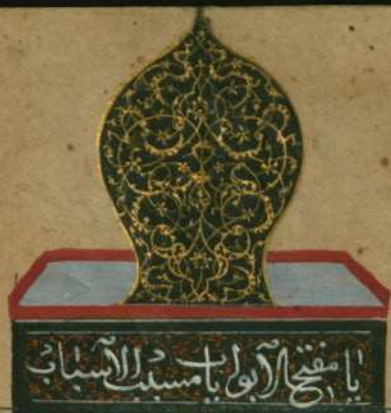 يا مفتح الآبواب يا مسبب الآسباب